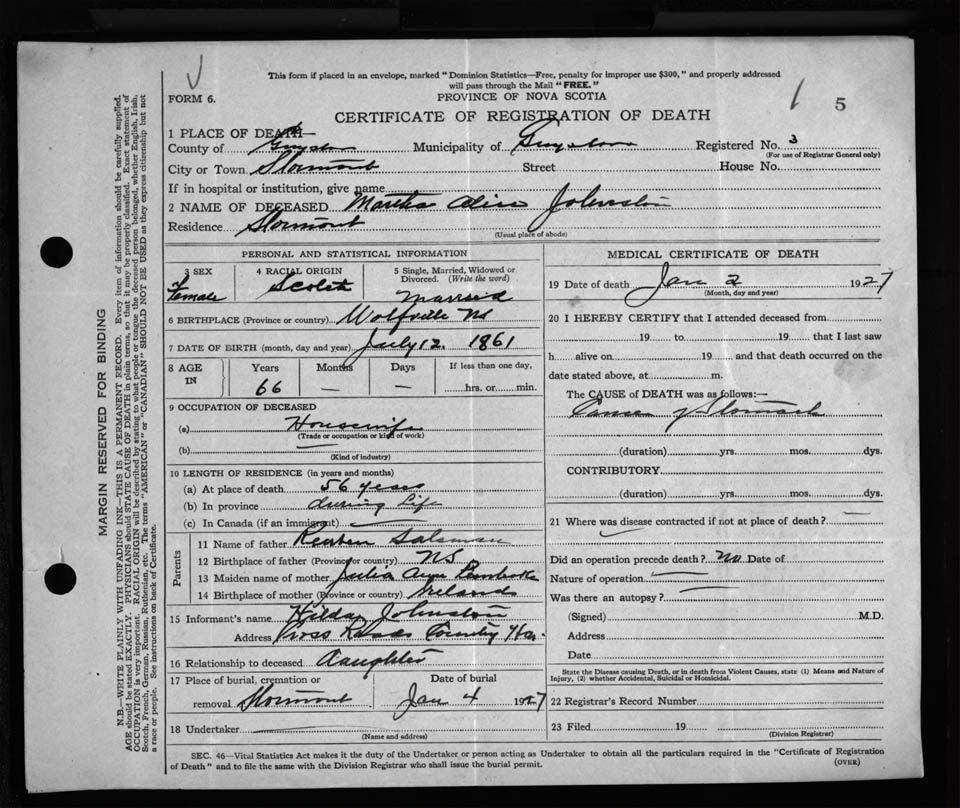 This form if placed in an envelope, marked "Dominion Statistics—Free, penalty for improper use $300," and properly addressed
will pass through the Mail "FREE."
FORM 6. PROVINCE OF NOVA SCOTIA 5
CERTIFICATE OF REGISTRATION OF DEATH
1 PLACE OF DEATH—
County of Guysboro Municipality of Guysboro Registered No. 3
(For use of Registrar General only)
City or Town Stormont Street House No.
If in hospital or institution, give name
2 NAME OF DECEASED Martha Alice Johnston
Residence Stormont
(Usual place of abode)
PERSONAL AND STATISTICAL INFORMATION
3 SEX 4 RACIAL ORIGIN 5 Single, Married, Widowed or
Divorced. (Write the word)
Female Scotch Married
6 BIRTHPLACE (Province or country) Wolfville NS
7 DATE OF BIRTH (month, day and year) July 12. 1861
8 AGE IN Years Months Days If less than one day,
66 — — hrs. or min.
9 OCCUPATION OF DECEASED
(a) Housewife
(Trade or occupation or kind of work)
(b)
(Kind of industry)
10 LENGTH OF RESIDENCE (in years and months)
(a) At place of death 56 years
(b) In province during life
(c) In Canada (if an immigrant)
Parents
11 Name of father Reuben Salsman
12 Birthplace of father (Province or country) NS
13 Maiden name of mother Julia
14 Birthplace of mother (Province or country) Ireland
15 Informant's name Hilda Johnston
Address Cross Roads Country Har.
16 Relationship to deceased daughter
17 Place of burial, cremation or Date of burial
removal Stormont Jan 4 1927
18 Undertaker
(Name and address)
MEDICAL CERTIFICATE OF DEATH
19 Date of death Jan 2 1927
(Month, day and year)
20 I HEREBY CERTIFY that I attended deceased from
19 to 19 that I last saw
h alive on 19 and that death occurred on the
date stated above, at m.
The CAUSE of DEATH was as follows:—
Cancer of Stomach
(duration) yrs. mos. dys.
CONTRIBUTORY
(duration) yrs. mos. dys.
21 Where was disease contracted if not at place of death?
Did an operation precede death? No Date of
Nature of operation
Was there an autopsy?
(Signed) M.D.
Address
Date
State the Disease causing Death, or in death from Violent Causes, state (1) Means and Nature of
Injury, (2) whether Accidental, Suicidal or Homicidal.
22 Registrar's Record Number
23 Filed 19
(Division Registrar)
SEC. 46—Vital Statistics Act makes it the duty of the Undertaker or person acting as Undertaker to obtain all the particulars required in the "Certificate of Registration
of Death" and to file the same with the Division Registrar who shall issue the burial permit. (OVER)
MARGIN RESERVED FOR BINDING
N.B.—WRITE PLAINLY WITH UNFADING INK—THIS IS A PERMANENT RECORD. Every item of information should be carefully supplied.
AGE should be stated EXACTLY. PHYSICIANS should STATE CAUSE OF DEATH in plain terms, so that it may be properly classified. Exact statement of
OCCUPATION is very important. RACIAL ORIGIN will be described by stating to what people or tongue the deceased person belonged, whether English, Irish,
Scotch, French, German, Russian, Ruthenian, etc. The terms "AMERICAN" or "CANADIAN" SHOULD NOT BE USED as they express citizenship but not
a race or people. See instructions on back of Certificate.